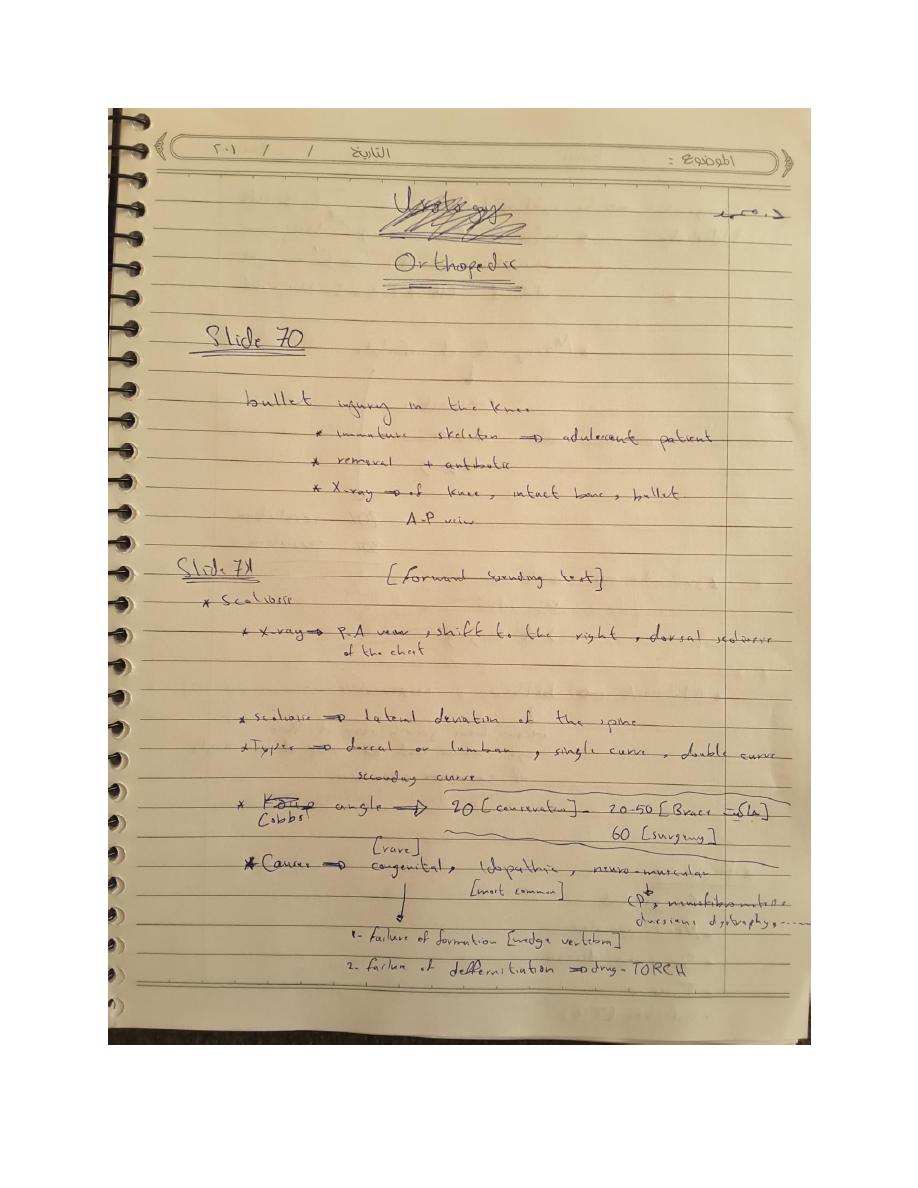 الموضوع :
التاريخ / / ٢٠١
Urology
Orthopedic
Slide 70
bullet injury in the Knee
* immature skeleton ⇒ adulescent patient
* removal + antibiotic
* X-ray ⇒ of knee, intact bone, bullet.
A-P view
Slide 71 [forward bending test]
* Scoliosis
* X-ray ⇒ P-A view, shift to the right, dorsal scoliosis
of the chest
* scoliosis ⇒ lateral deviation of the spine
* Types ⇒ dorsal or lumbar, single curve, double curve
seconday curve
* angle ⇒ 20 [conservative] - 20-50 [Brace ⇒]
Cobbs 60 [surgery]
[rare]
* Causes ⇒ congenital, Idopathic, neuro-muscular
[most common]
CP, neurofibromatosis
dystrophy, -----
1- failure of formation [wedge vertebra]
2- failure of deffernitiation ⇒ drug - TORCH